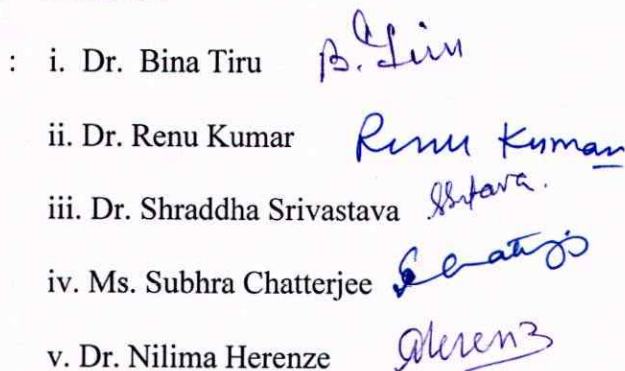 : i. Dr. Bina Tiru B. Tiru
ii. Dr. Renu Kumar Renu Kumar
iii. Dr. Shraddha Srivastava
iv. Ms. Subhra Chatterjee
v. Dr. Nilima Herenze